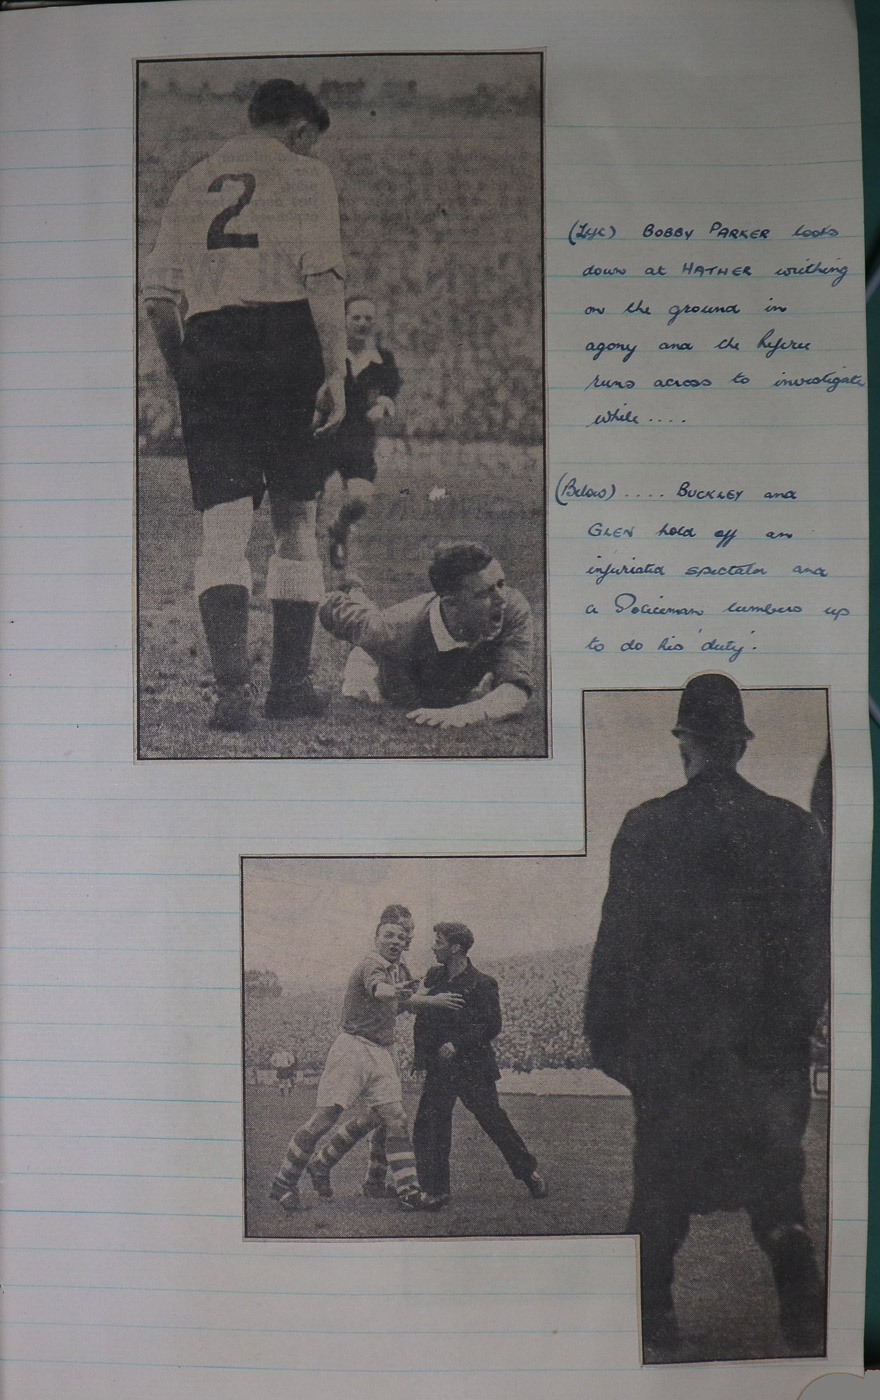 2
(Left) BOBBY PARKER looks
down at HATHER writhing
on the ground in
agony and the referee
runs across to investigate
while ....
(Below) .... BUCKLEY and
GLEN hold off an
infuriated spectator and
a Policeman lumbers up
to do his 'duty'.